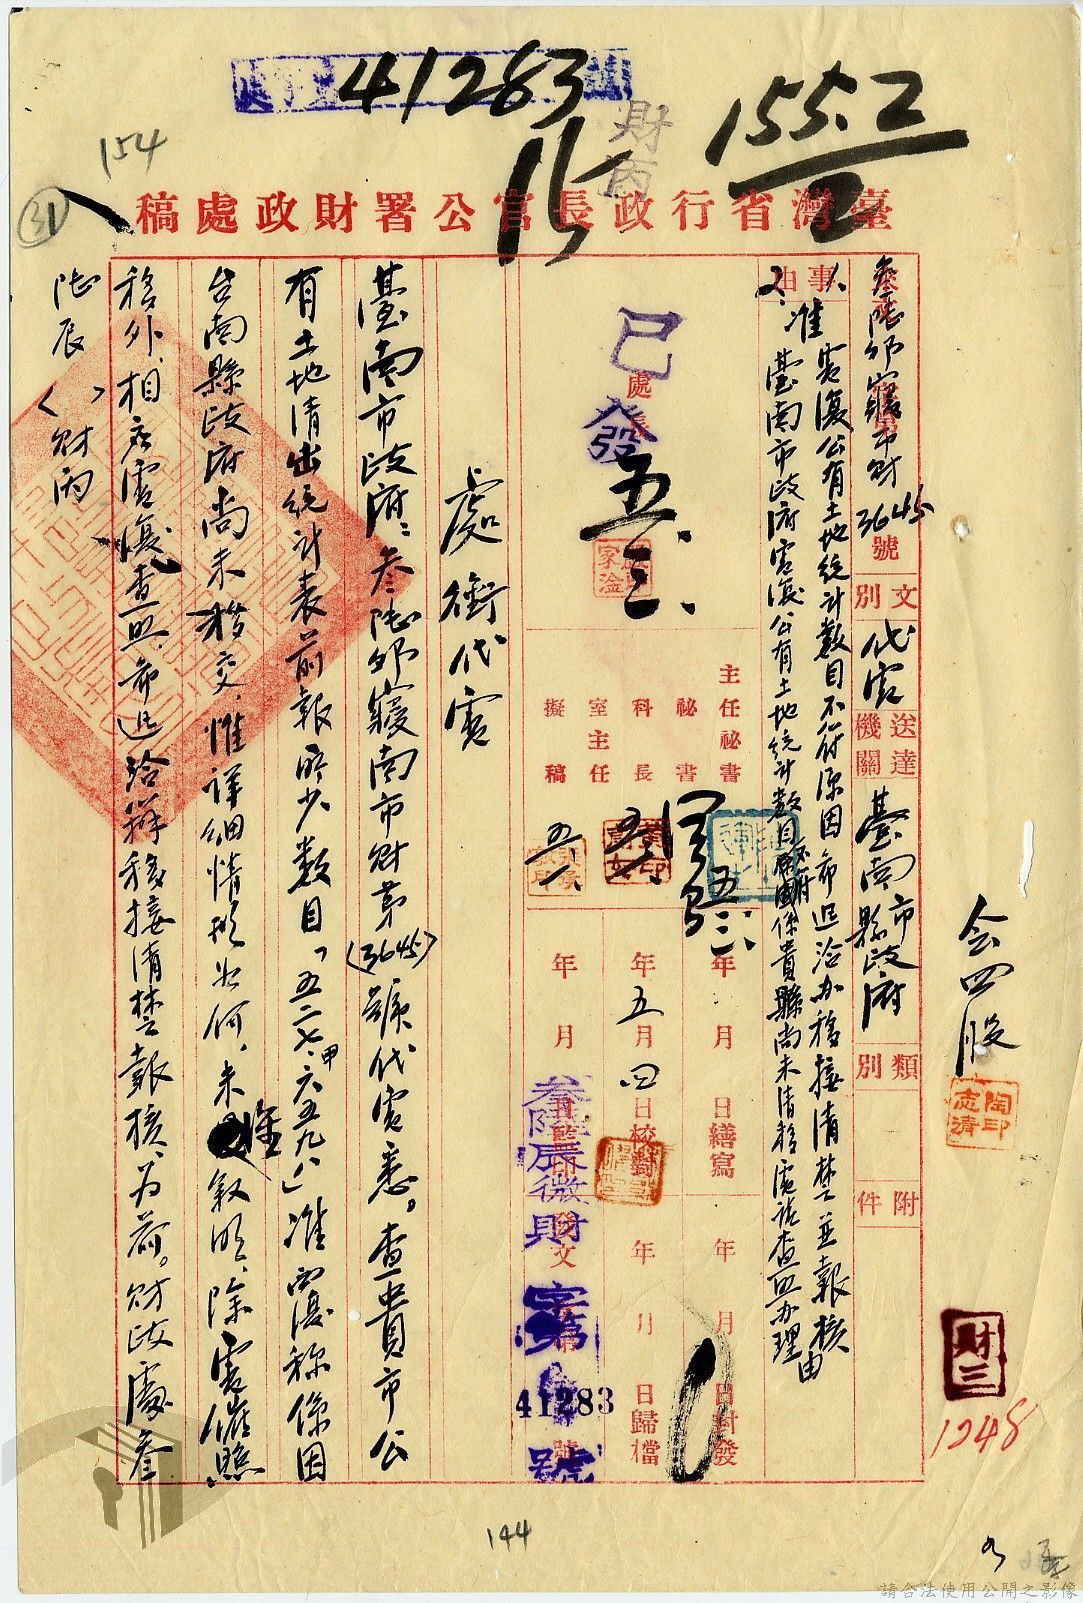 41283
155.2
154
31
財丙
臺灣省行政長官公署財政處稿
叁陸卯寢南市財3645號
文別
代電
送達機關
臺南市縣政府
類別
附件
事由
1.准電復公有土地統計數目不符原因希逕洽办移接清楚並報核由
2.准臺南市政府電復公有土地統計數目不符原因係貴縣尚未清移電請查照办理
處長
已發
五、三、
主任秘書
秘書
科長
室主任
擬稿
五、二、
年月日繕寫
年五月四日校對
年月日監印
年月日封發
年月日歸檔
叁陸辰微財
發文
字第41283號
處銜代電
臺南市政府：叁陸卯寢南市財第(3645)號代電悉。查貴市公
有土地清出統計表前報略少數目「五二七甲六五九八」准電復称係因
台南縣政府尚未移交，惟詳細情形如何，未准敘明，除電催照
移外，相应電復查照，希逕洽辦移接清楚報核為荷。財政處叁
陸辰（　）財丙
会四股
陶志清印
財三
1248
144
請合法使用公開之影像